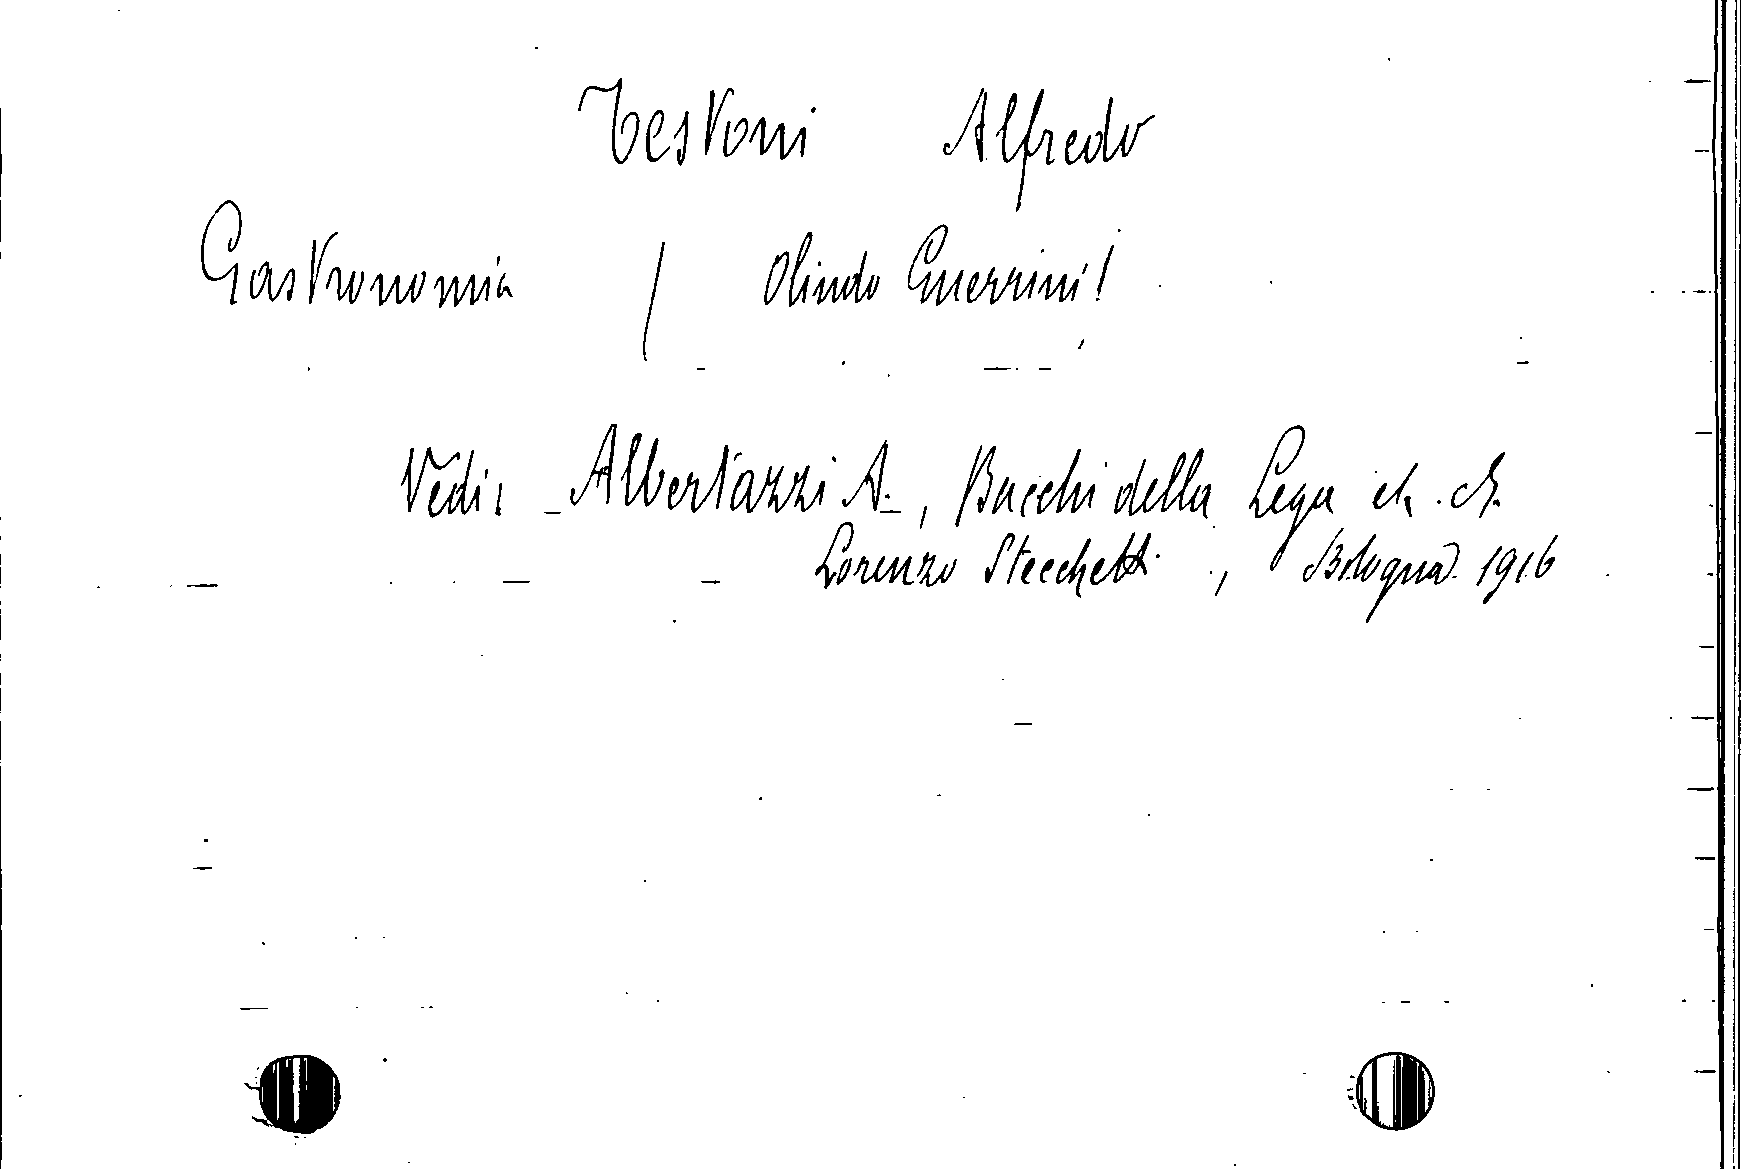 Testoni Alfredo
Gastronomia / Olindo Guerrini /
Vedi: Albertazzi A., Bacchi della Lega
Lorenzo Stecchetti, Bologna 1916